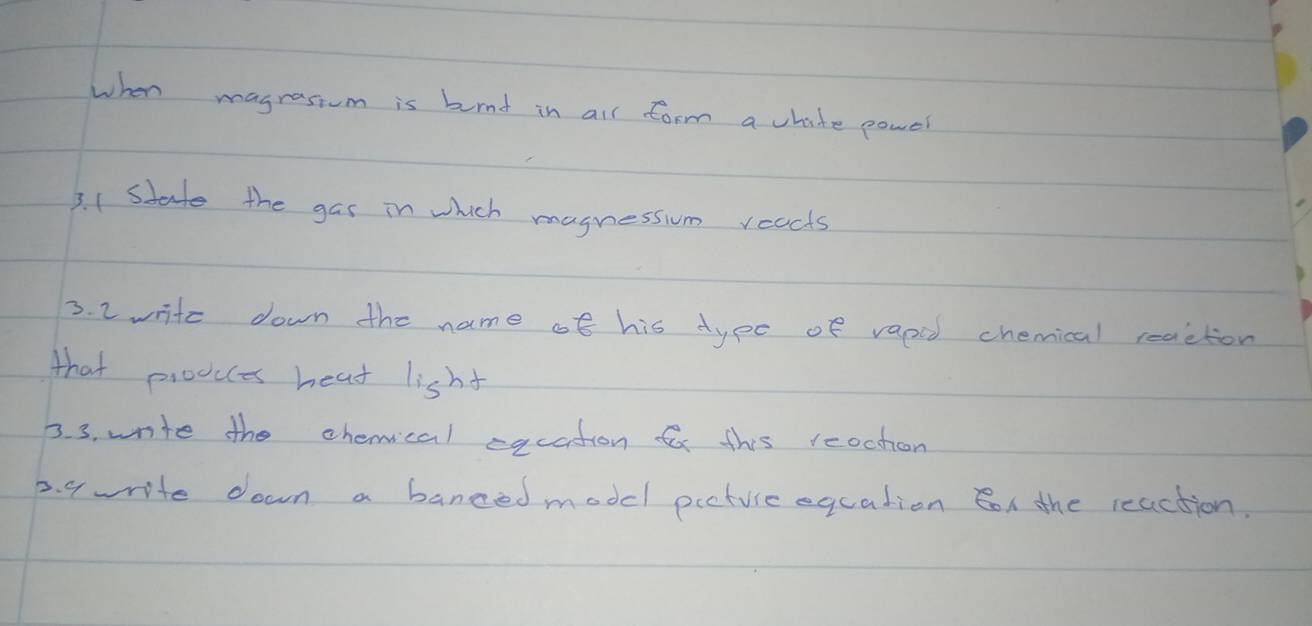 When magrasium is burnt in air form a white power
3.1 State the gas in which magnessium reacts
3.2 write down the name of his type of rapid chemical reaction
that produces heat light
3.3. write the chemical eqcation for this reaction
3.4 write down a banced model picture eqcation for the reaction.